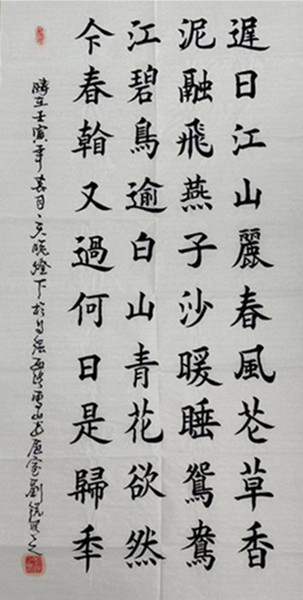 遲日江山麗春風芲草香
泥融飛燕子沙暖睡鴛鴦
江碧鳥逾白山青花欲然
今春看又過何日是歸秊
時在壬寅年春月燈下於